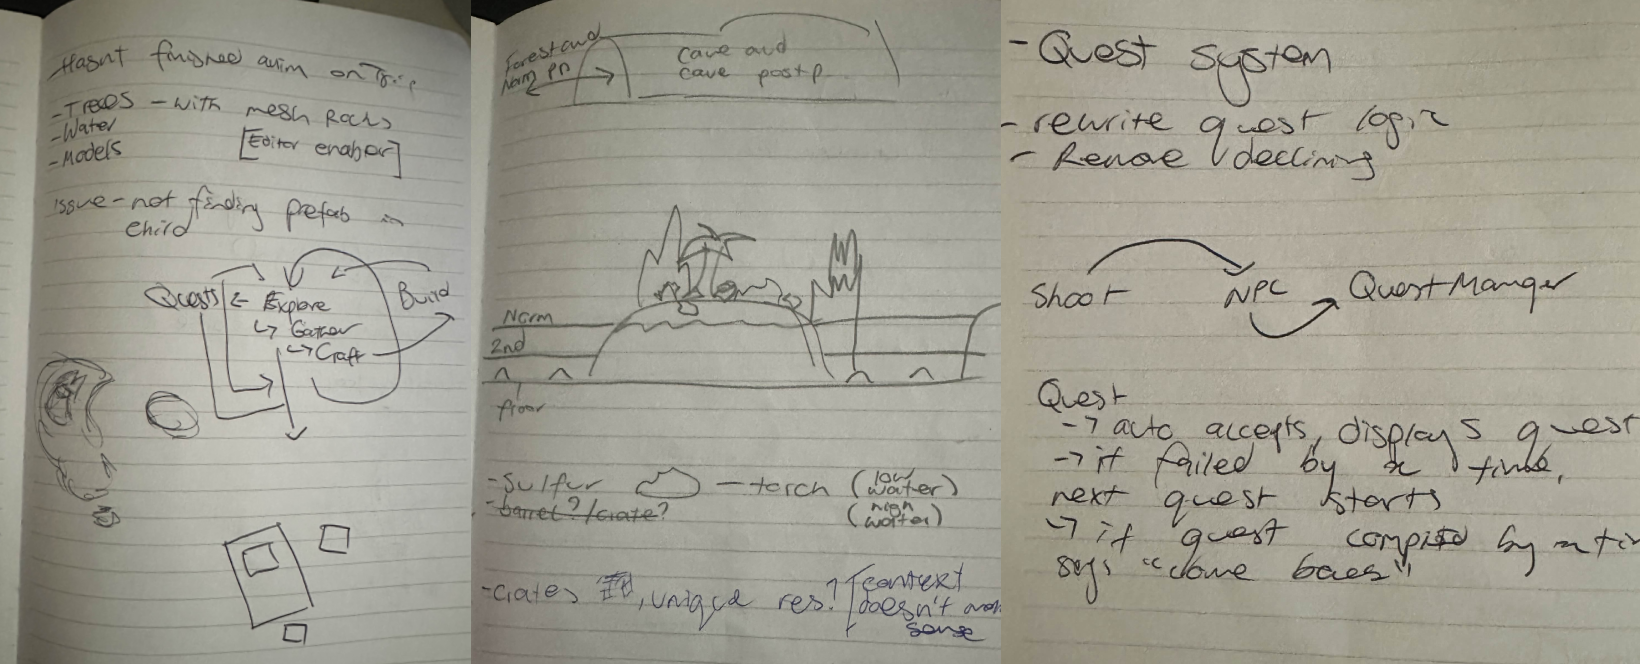 Hasnt finished anim on
-Trees - with mesh Rocks
-Water
-Models
[Editor enabler]
issue - not finding prefab in
child
Quests
Explore
Build
Gather
Craft
Forest and
Norm pp
Cave and
cave postp
Norm
2nd
floor
-Sulfur
-torch (low water)
(high water)
-barrel?/crate?
-Crates
, unique res? [context
doesn't
sense
-Quest system
-rewrite quest logic
- Remove declining
Shoot
NPC
QuestManger
Quest
-> auto accepts, displays quest
-> if failed by x time,
next quest starts
-> if quest by x
says "come back"